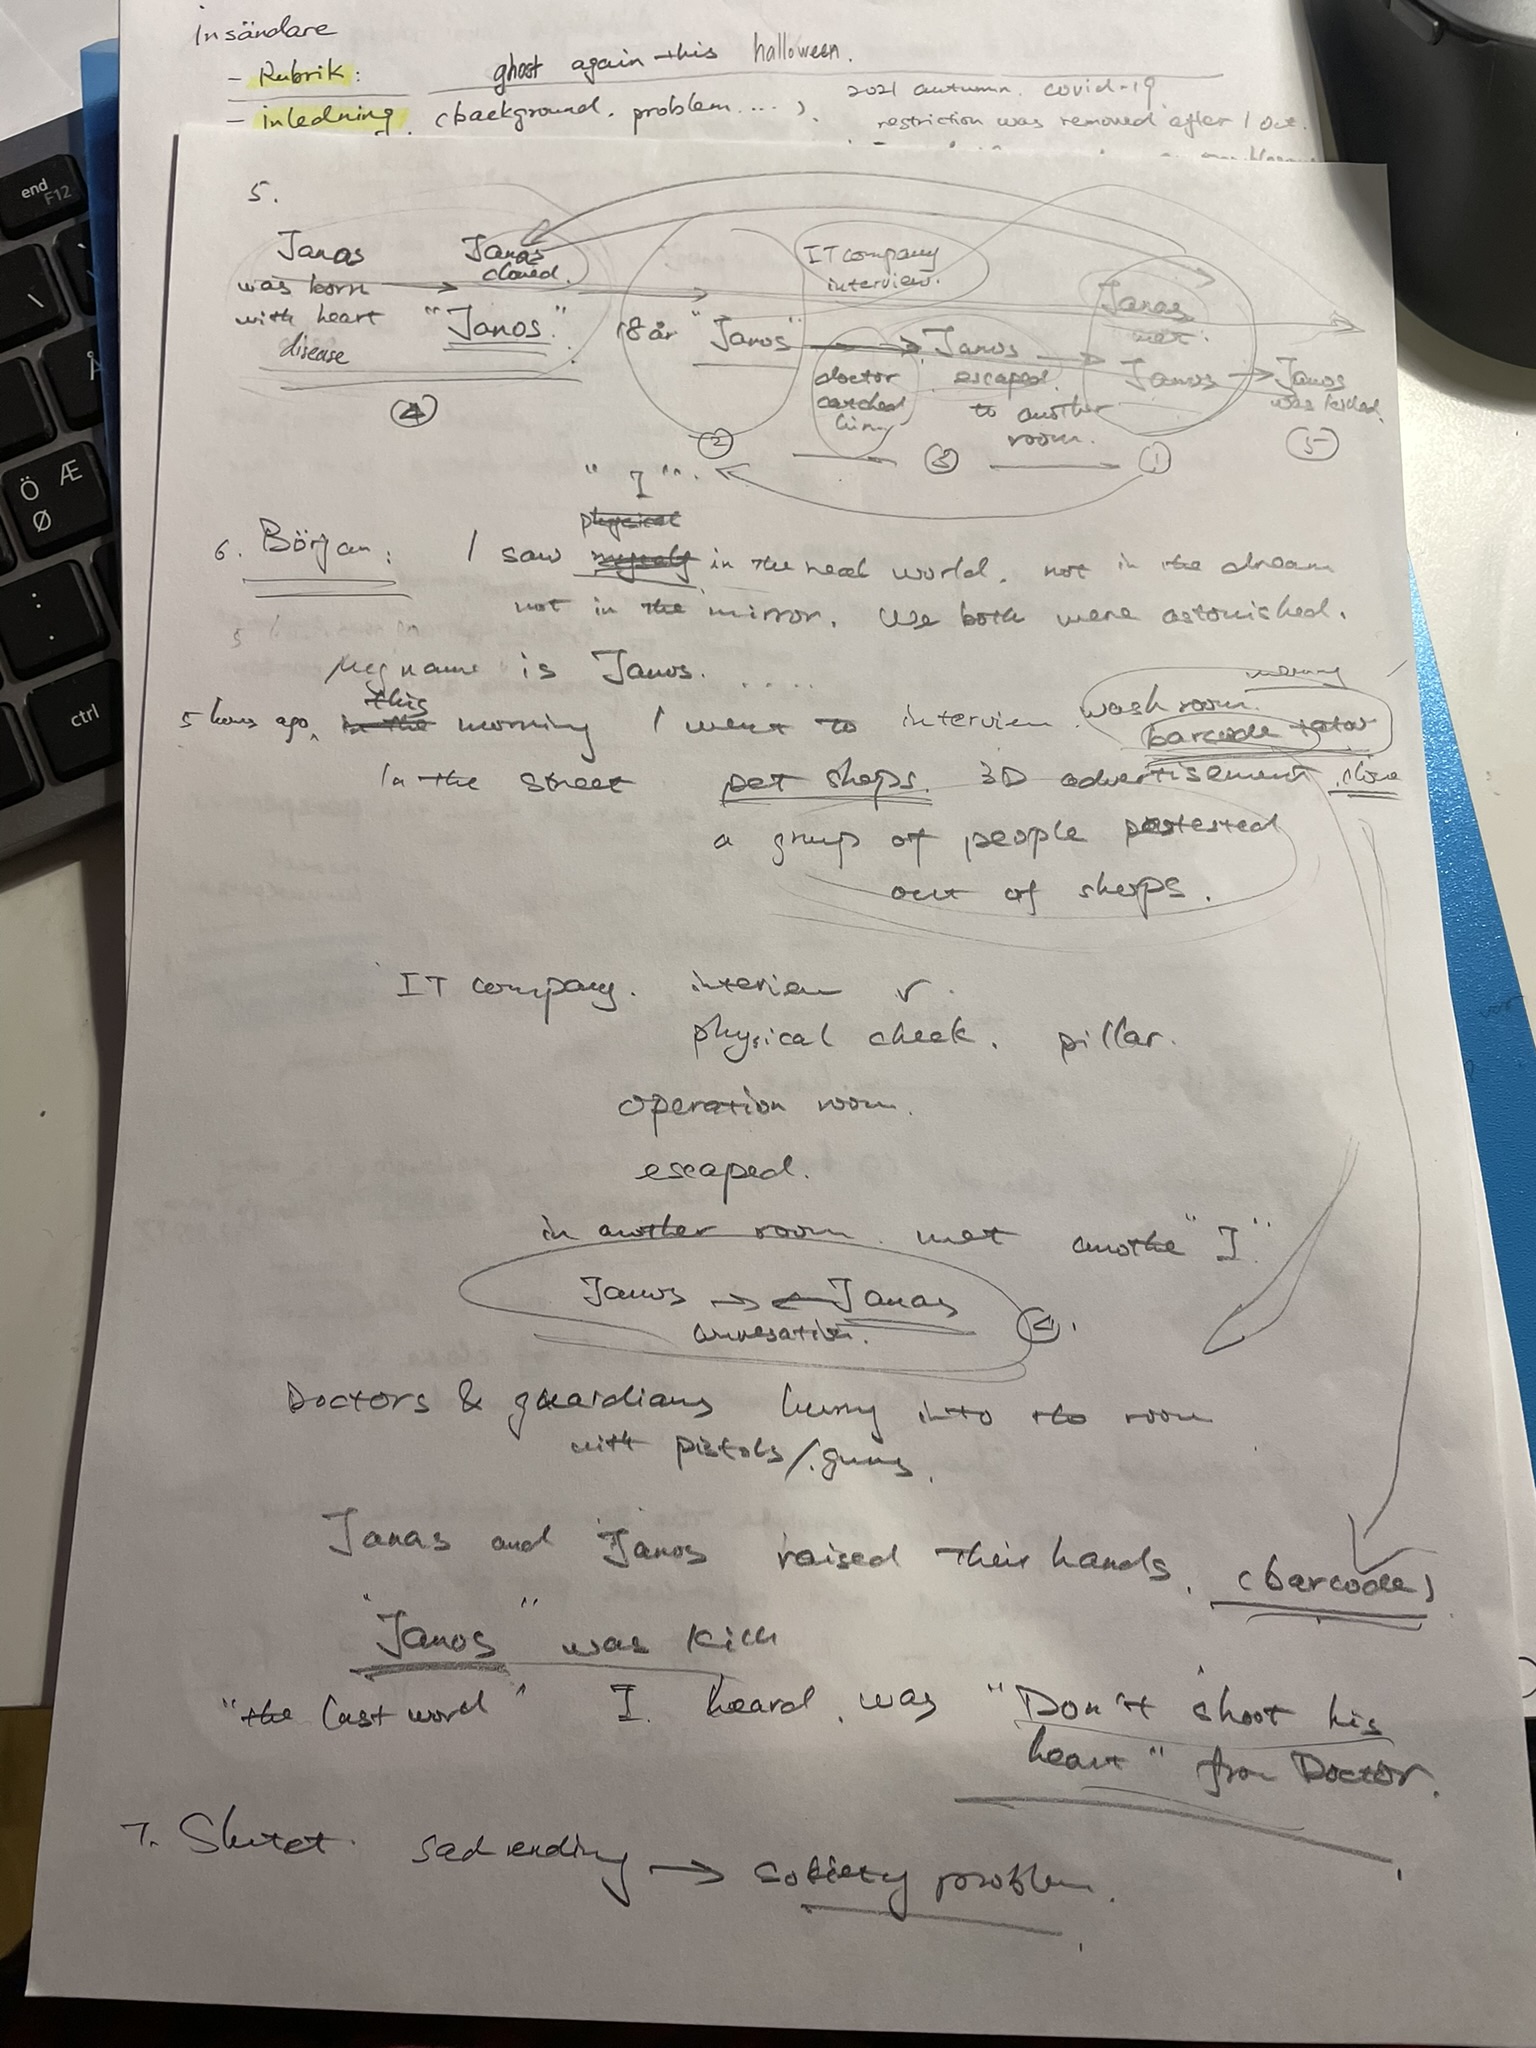 Insändare
- Rubrik: ghost again this halloween.
- inledning (background. problem .... ). 2021 autumn. covid-19
restriction was removed after 1 Oct.
5.
Janas was born with heart disease
Janas cloned.
"Janos."
18 år "Janos"
IT company interview.
doctor catched him
Janos escaped to another room.
Janas met Janos
Janos was killed
④ ② ③ ① ⑤
"I".
physical
6. Början: I saw myself in the real world. not in the dream
not in the mirror. We both were astonished.
My name is Janos. .....
5 hours ago, in the this morning I went to interview. wash room.
barcode tatoo
In the street pet shops. 3D advertisement. clone
a group of people protested
out of shops.
IT company. interview √.
physical check. pillar.
operation room.
escaped.
in another room. met anothe "I".
Janos → ← Janas
conversation.
④.
Doctors & guardians hurry into the room
with pistols/guns.
Janas and Janos raised their hands. (barcode)
"Janos" was kill
"the last word" I heard was "Don't shoot his
heart" from Doctor.
7. Slutet. sad ending → sociaty problem.
end
F12
Ö Æ
Ø
Å
:
.
ctrl